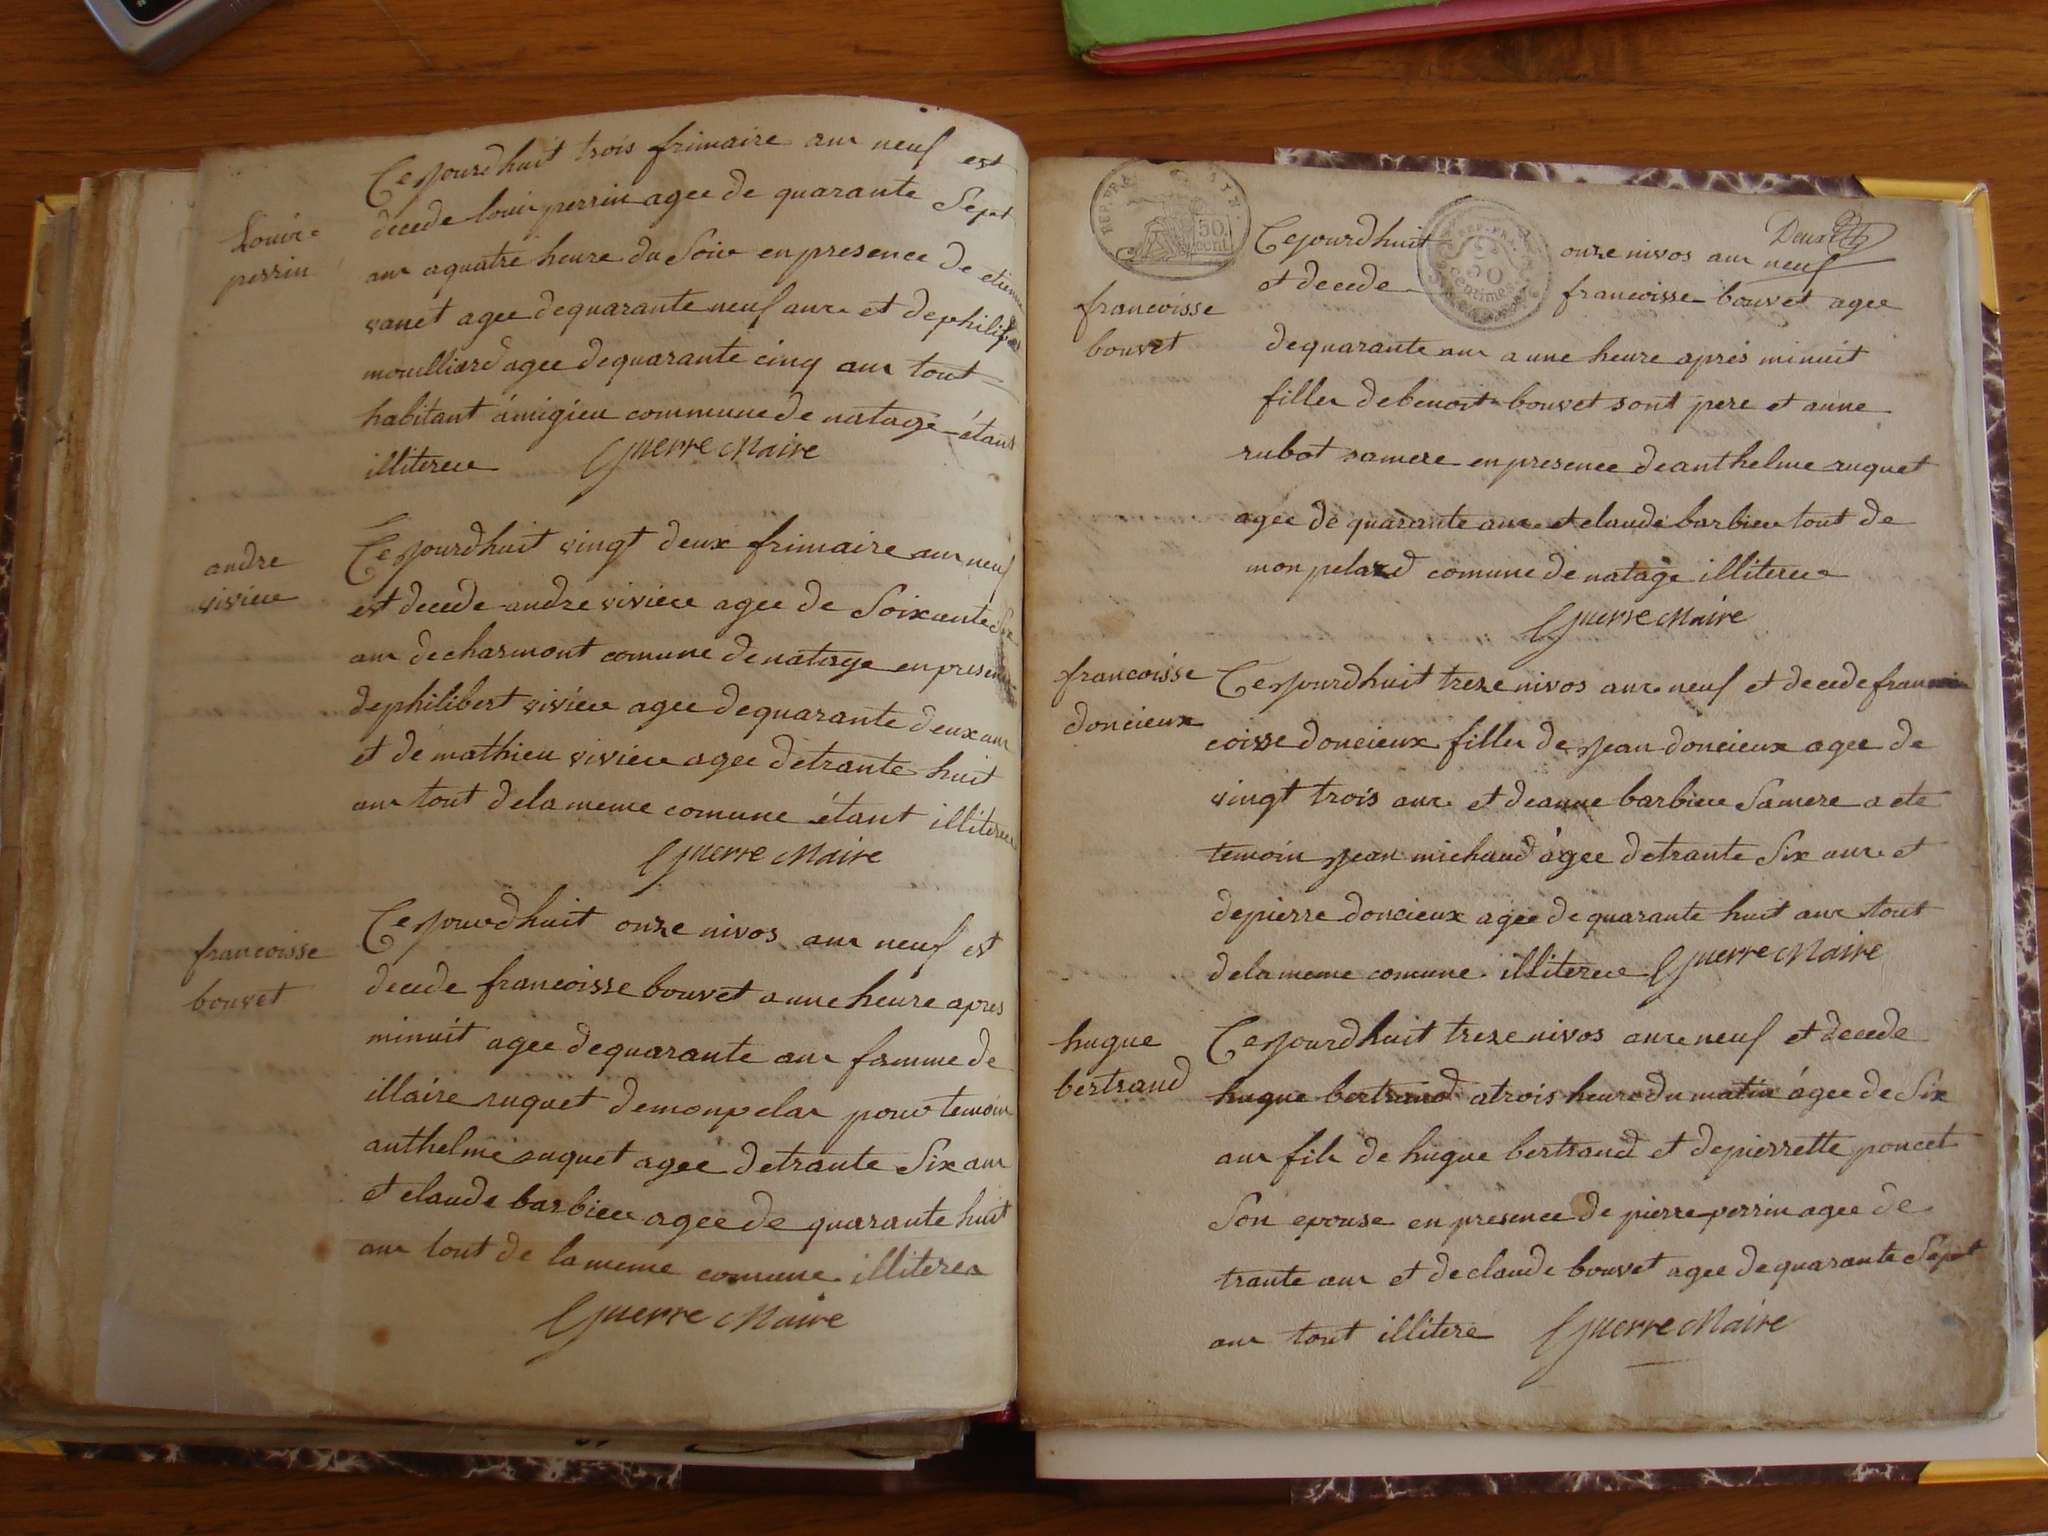 Louis
perrin
Cejourdhuit trois frimaire ans neuf est
decede louis perrin agee de quarante Sept
ans aquatre heure du Soir en presence de etienne
vanet agee dequarante neuf ans et dephilibert
mouilliard agee dequarante cinq ans tout
habitant ámigieu commune de natage étant
illiteres Guerre Maire
andre
vivier
Cejourdhuit vingt deux frimaire ans neuf
est decede andre vivier agee de Soixante Six
ans decharmont comune de natage en presence
dephilibert vivier agee dequarante deux ans
et de mathieu vivier agee detrante huit
ans tout delameme comune étant illiteres
Guerre Maire
francoisse
bouvet
Cejourdhuit onze nivos ans neuf est
decede francoisse bouvet a une heure apres
minuit agee dequarante ans famme de
illaire ruquet demonpelas pour temoin
anthelme ruquet agee detrante Six ans
et claude barbier agee de quarante huit
ans tout de lameme comune illiteres
Guerre Maire
REP. FRA
50
cent.
REP. FRA
50
centimes
Deux
francoisse
bouvet
Cejourdhuit onze nivos ans neuf
et decede francoisse bouvet agee
dequarante ans a une heure aprés minuit
filles debenoit bouvet sont pere et anne
rubot samere en presence deanthelme ruquet
agee de quarante ans et claude barbier tout de
monpelard comune de natage illiteres
Guerre Maire
francoisse
doncieux
Cejourdhuit treze nivos ans neuf et decede fran
coisse doncieux filles de jean doncieux agee de
vingt trois ans et deanne barbier Samere a ete
temoin jean michaud ágee detrante Six ans et
depierre doncieux agee de quarante huit ans tout
delameme comune illiteres Guerre Maire
hugue
bertrand
Cejourdhuit treze nivos ans neuf et decede
hugue bertrand atrois heure du matin ágee de Six
ans fils de hugue bertrand et depierrette poncet
Son epouse en presence de pierre perrin agee de
trante ans et declaude bouvet agee dequarante Sept
ans tout illitere Guerre Maire